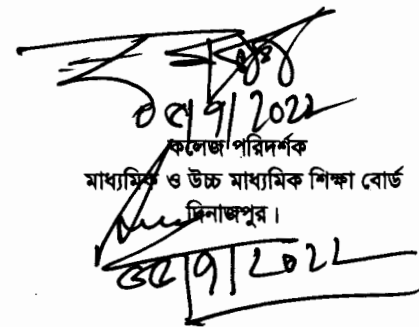 ০৫/৭/2022
কলেজ পরিদর্শক
মাধ্যমিক ও উচ্চ মাধ্যমিক শিক্ষা বোর্ড
দিনাজপুর।
০৫/৭/2022